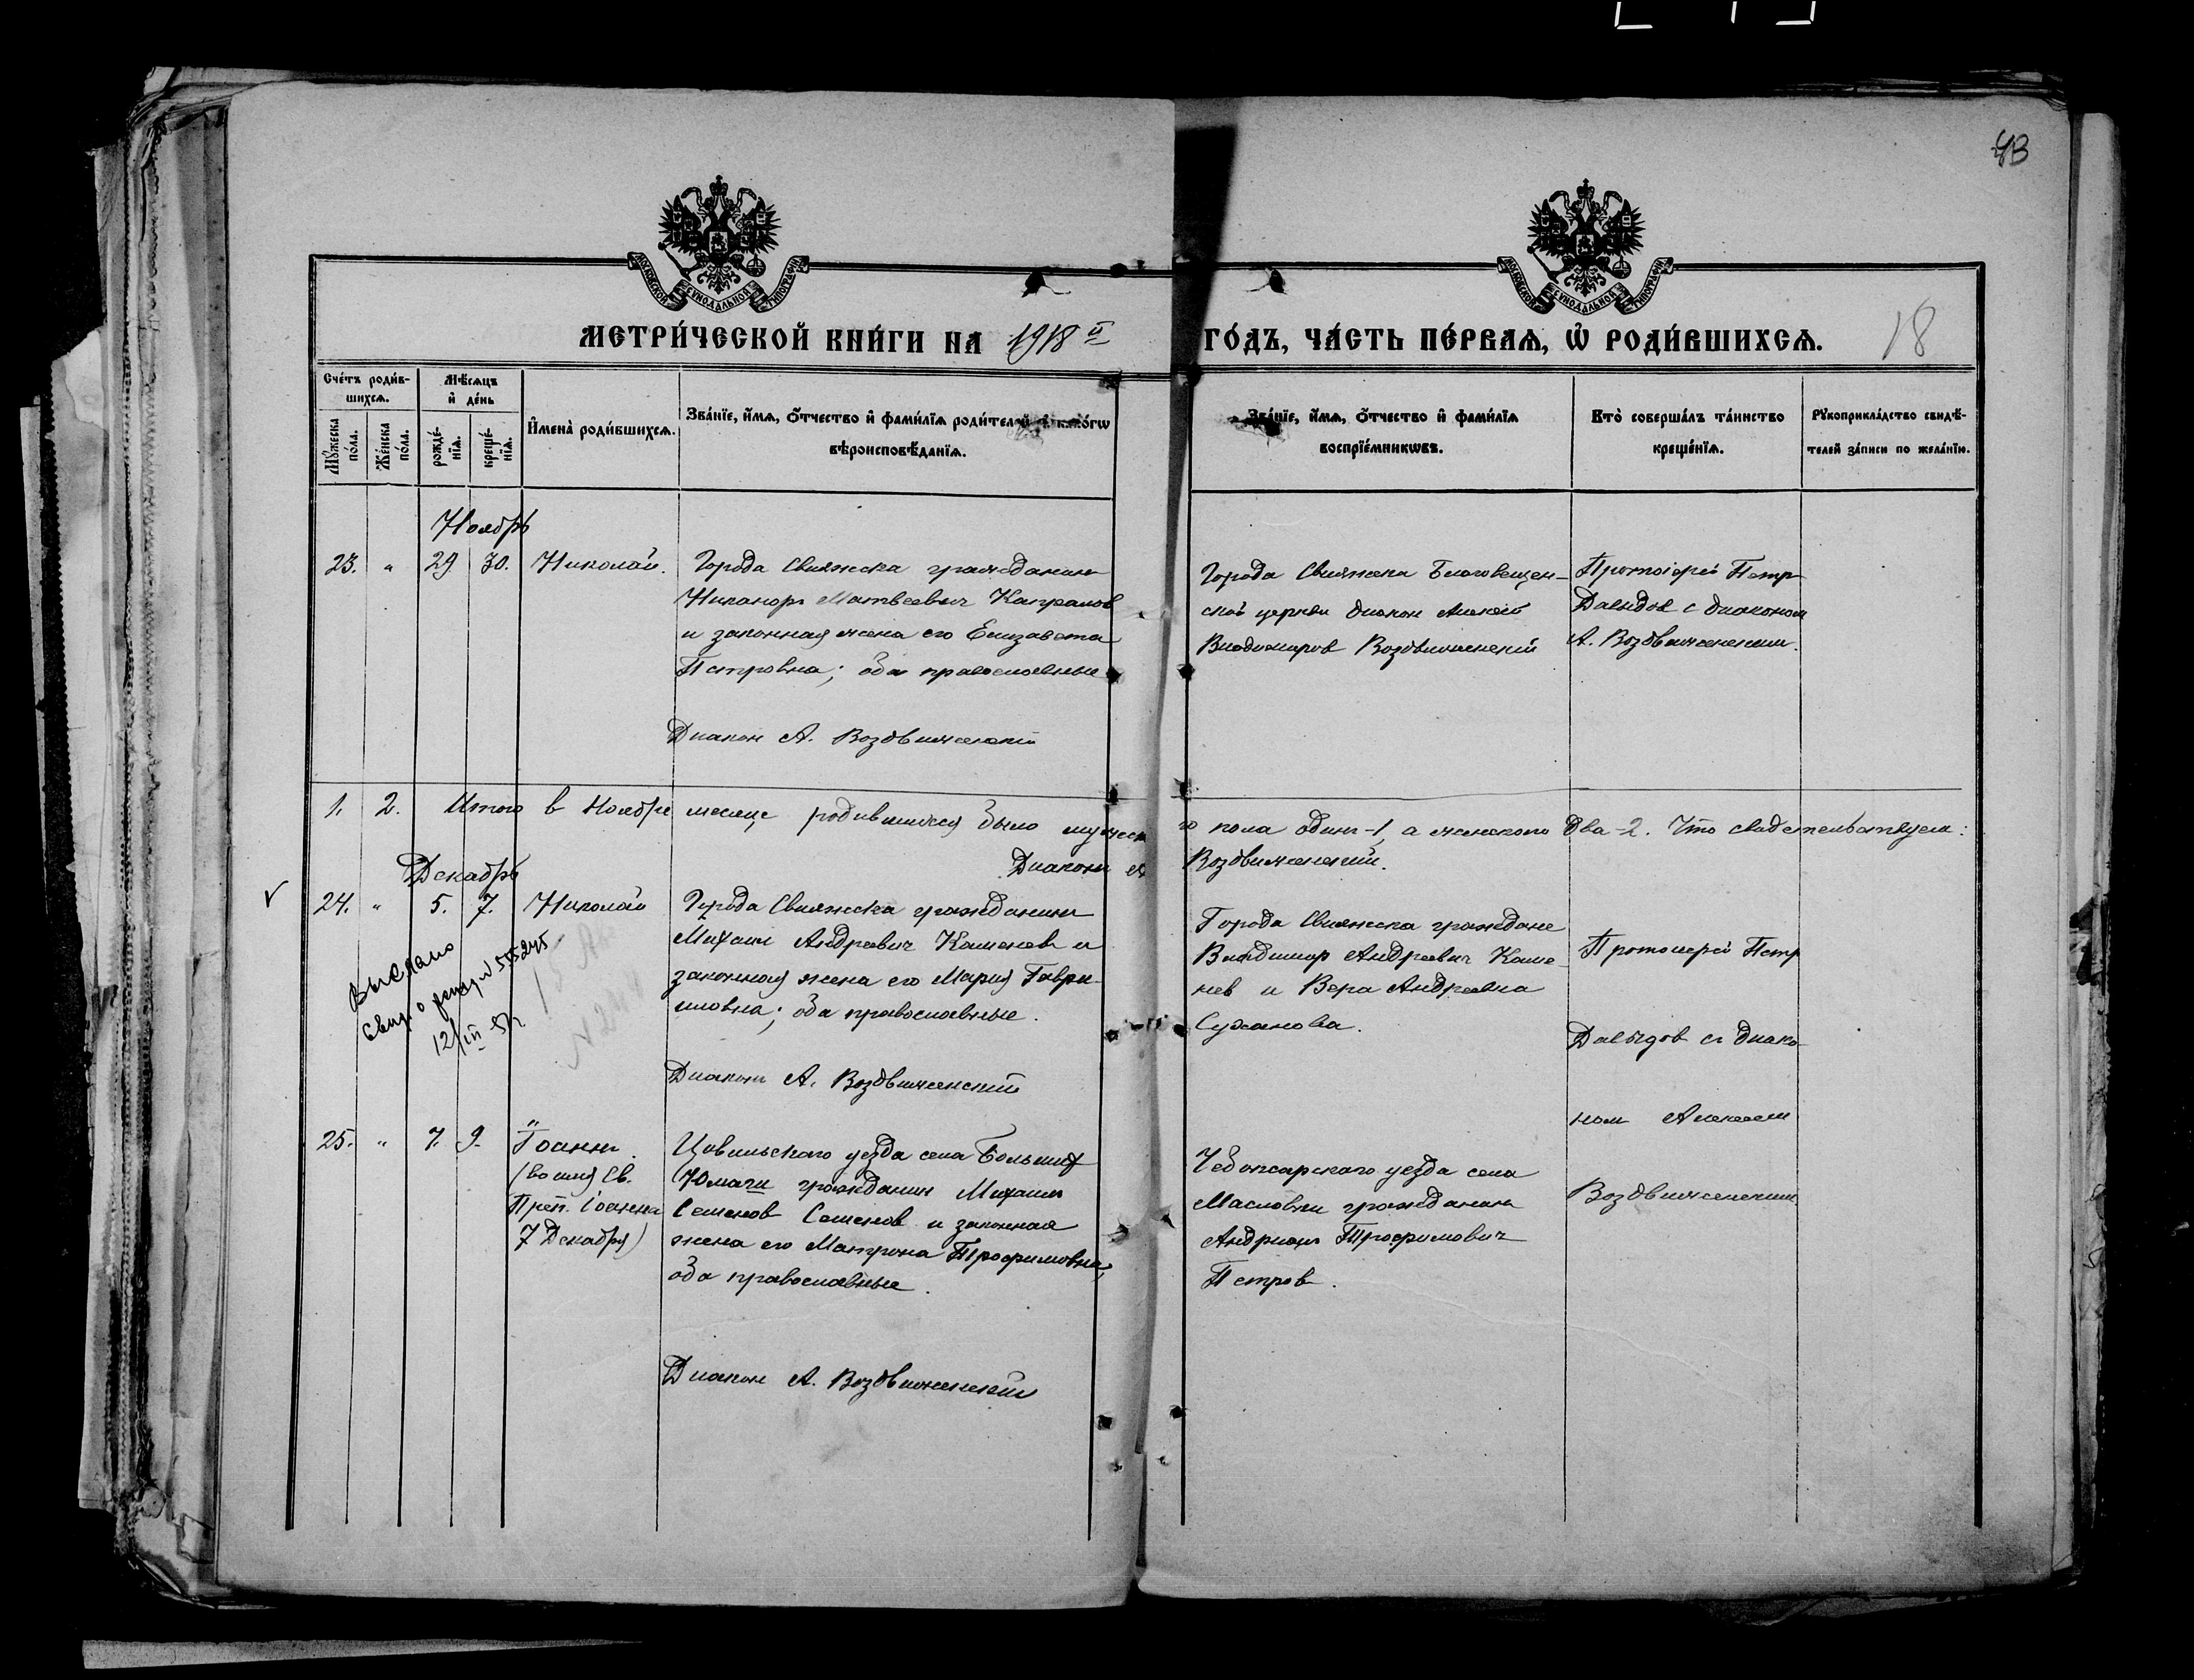 43
МОСКОВСКОЙ СѴНОДАЛЬНОЙ ТИПОГРАФІИ
МОСКОВСКОЙ СѴНОДАЛЬНОЙ ТИПОГРАФІИ
МЕТРИ́ЧЕСКОЙ КНИ́ГИ НА 1918 й ГО́ДЪ, ЧА́СТЬ ПЕ́РВАѦ, Ѡ҆ РОДИ́ВШИХСѦ.
18
Сче́тъ роди́в-
шихсѧ.
Мꙋ́жеска
по́ла.
Же́нска
по́ла.
Мѣ́сѧцъ
и҆ де́нь
рожде́-
нїѧ.
креще́-
нїѧ.
И҆мена̀ роди́вшихсѧ.
Зва́нїе, и҆́мѧ, ѻ҆́тчество и҆ фами́лїѧ роди́телей и҆ како́гѡ
вѣроисповѣ́данїѧ.
Зва́нїе, и҆́мѧ, ѻ҆́тчество и҆ фами́лїѧ
воспрїе́мникѡвъ.
Кто̀ соверша́лъ та́инство
креще́нїѧ.
Рꙋкоприкла́дство свидѣ́-
телей за́писи по жела́нїю.
Ноябрь
23. " 29 30. Николай.
Города Свияжска гражданин
Никанор Матвеевич Капралов
и законная жена его Елизавета
Петровна; оба православные
Диакон А. Воздвиженский
Города Свияжска Благовещен-
ской церкви диакон Алексей
Владимиров Воздвиженский
Протоіерей Петр
Давидов с диаконом
А. Воздвиженским.
1. 2. Итого в Ноябре месяце родившихся было мужского пола один-1, а женского два-2. Что свидетельствуем:
Диакон А Воздвиженский.
Декабрь
24. " 5. 7. Николай
Города Свияжска гражданин
Михаил Андреевич Каменев и
законная жена его Мария Гаври-
иловна; оба православные.
Диакон А. Воздвиженский
выслано
свид. о рожд. № 555245
12/III
Города Свияжска граждане
Владимир Андреевич Каме-
нев и Вера Андреевна
Суханова.
Протоиерей Петр
Давыдов с диако-
ном Алексеем
Воздвиженским
25. " 7. 9. Іоанн.
(во имя Св.
Преп. Іоанна
7 Декабря)
Цивильского уезда села Больших
Юмаги гражданин Михаил
Семенов Семенов и законная
жена его Матрона Трофимовна;
оба православные.
Диакон А. Воздвиженский
Чебоксарского уезда села
Масловки гражданин
Андриан Трофимович
Петров.